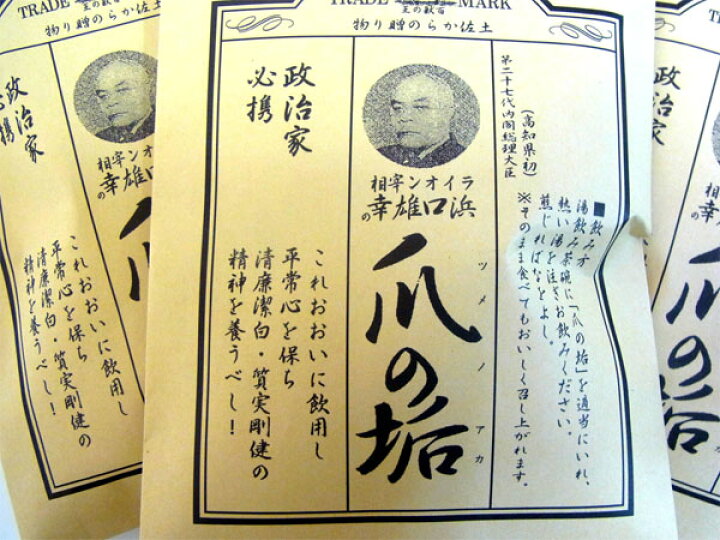 TRADE MARK
百獣の王
土佐からの贈り物
第二十七代内閣総理大臣
(高知県初)
■飲み方
湯飲み茶碗に「爪の垢」を適当にいれ、
熱い湯を注ぎお飲みください。
煎じればなをよし。
※そのまま食べてもおいしく召し上がれます。
ライオン宰相
浜口雄幸の
爪の垢
ツメノアカ
政治家
必携
これおおいに飲用し
平常心を保ち
清廉潔白・質実剛健の
精神を養うべし!
TRADE
土佐からの贈り物
オン宰相
雄幸の
爪の
政治家
必携
これおおいに飲用し
平常心を保ち
清廉潔白・質実剛健の
精神を養うべし!
政治家
爪の垢